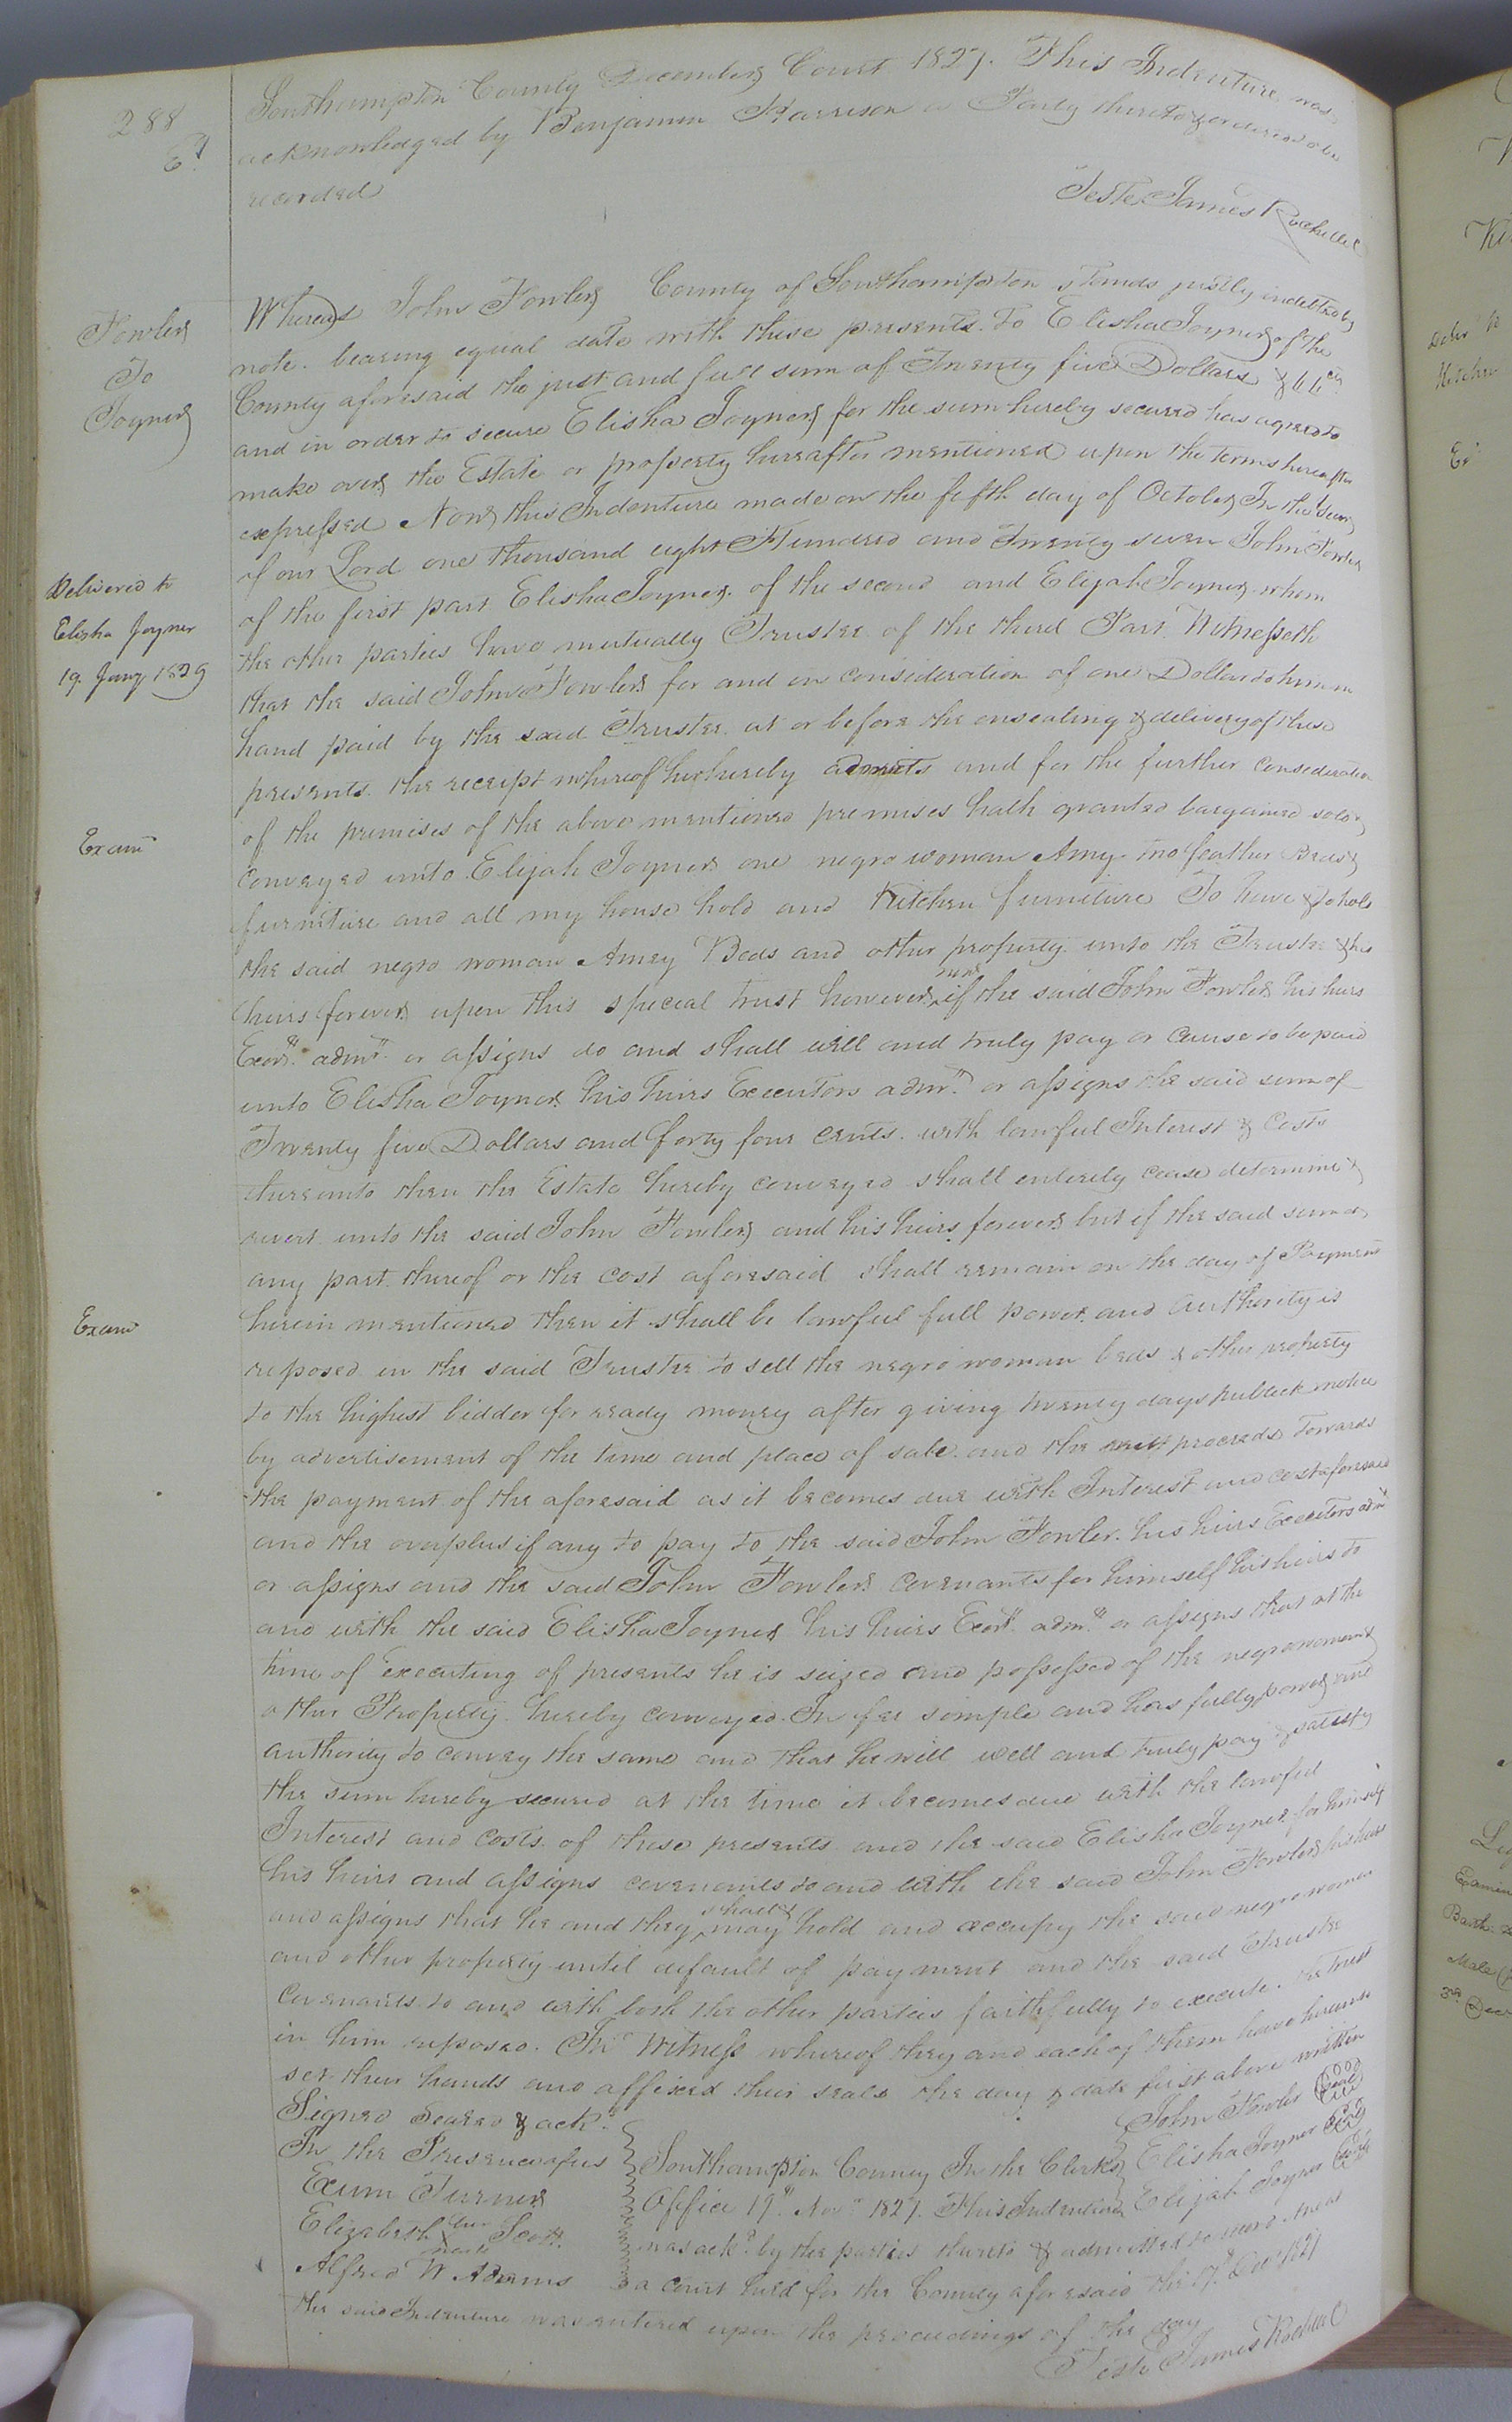 288
Ed
Southampton County December Court 1827. This Indenture was
acknowledged by Benjamin Harrison a Party thereto & ordered to be
recorded
Teste James Rochelle
Fowler
To
Joyner
Whereas John Fowler County of Southampton stands justly indebted by
note bearing equal date with these presents To Elisha Joyner of the
County aforesaid the just and full sum of Twenty five Dollars & 44 cts
and in order to secure Elisha Joyner for the sum hereby secured has agreed to
make over the Estate or property hereafter mentioned upon the terms hereafter
expressed Now this Indenture made on the fifth day of October In the year
of our Lord one thousand eight Hundred and Twenty seven John Fowler
of the first part Elisha Joyner of the second and Elijah Joyner whom
Delivered to
Elisha Joyner
19. Jany 1829
the other parties have mutually Trustee of the third Part. Witnesseth
that the said John Fowler for and in consideration of one Dollar to him in
hand paid by the said Trustee at or before the ensealing & delivery of these
presents the receipt whereof he hereby admits and for the further consideration
of the premises of the above mentioned premises hath granted bargained sold &
Exam
conveyed unto Elijah Joyner one negro woman Amy two feather Beds &
furniture and all my house hold and Kitchen furniture To have & to hold
the said negro woman Amey Beds and other property unto the Trustee & his
heirs forever upon this special trust however if the said John Fowler his heirs
Exors. admrs. or assigns do and shall will and truly pay or cause to be paid
unto Elisha Joyner his heirs Executors admrs. or assigns the said sum of
Twenty five Dollars and forty four cents with lawful Interest & Costs
thereunto then the Estate hereby conveyed shall entirely cease determine &
revert unto the said John Fowler and his heirs forever but if the said sum or
any part thereof or the cost aforesaid shall remain on the day of Payment
Exam
herein mentioned then it shall be lawful full power and authority is
reposed in the said Trustee to sell the negro woman beds & other property
to the highest bidder for ready money after giving twenty days publick notice
by advertisement of the time and place of sale and the proceeds Towards
the payment of the aforesaid as it becomes due with Interest and cost aforesaid
and the overplus if any to pay to the said John Fowler his heirs Executors admrs
or assigns and the said John Fowler covenants for himself his heirs to
and with the said Elisha Joyner his heirs Exors. admrs. or assigns that at the
time of executing of presents he is seized and possessed of the negro woman &
other Property hereby conveyed In fee simple and has fully power and
authority to convey the same and that he will well and truly pay & satisfy
the sum hereby secured at the time it becomes due with the lawful
Interest and costs of these presents and the said Elisha Joyner for himself
his heirs and assigns covenants to and with the said John Fowler his heirs
and assigns that he and they shall & may hold and occupy the said negro woman
and other property until default of payment and the said Trustee
covenants to and with both the other parties faithfully to execute the trust
in him reposed. In Witness whereof they and each of them have hereunto
set their hands and affixed their seals the day & date first above written
Signed Sealed & ackd.
In the Presence of us
Exum Turner
Elizabeth her mark Scott
Alfred W Adams
John Fowler Seal
Elisha Joyner Seal
Elijah Joyner Seal
Southampton County In the Clerks
Office 19th Novr 1827. This Indenture
was ackd. by the parties thereto & admitted to record And at
a Court held for the County aforesaid the 17th Decr 1827
the said Indenture was entered upon the proceedings of the day
Teste James Rochelle